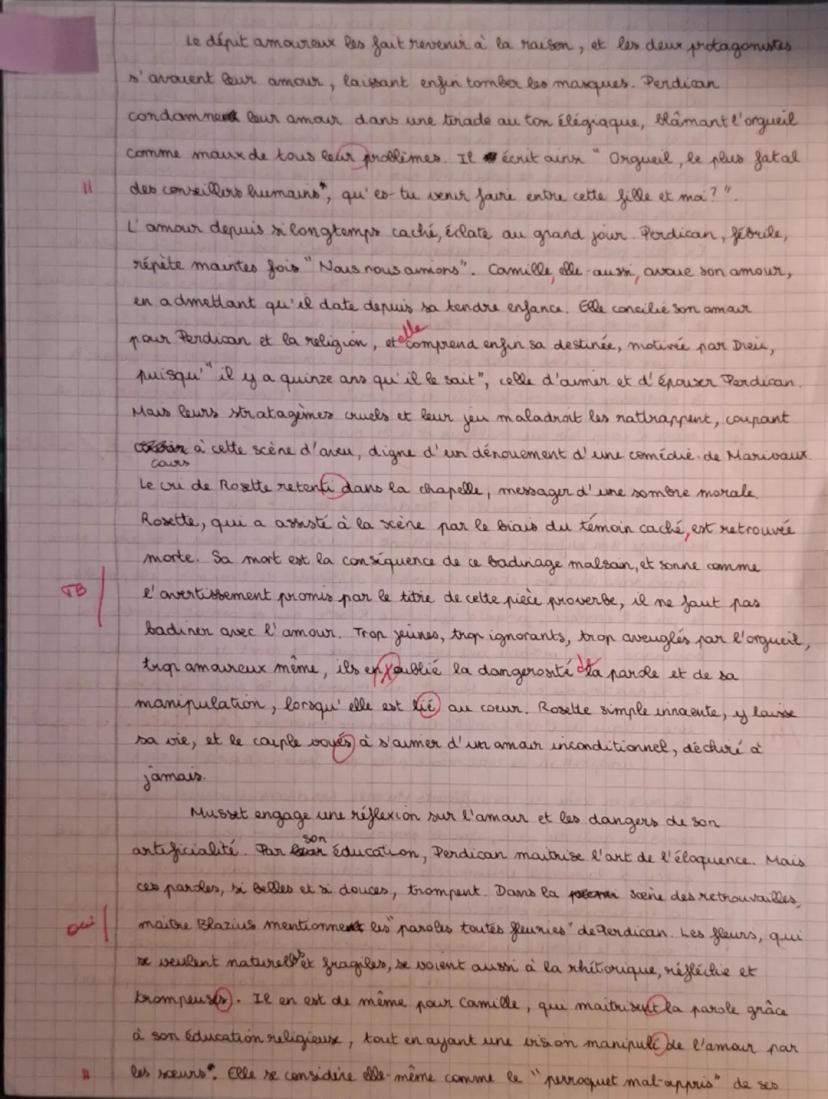 Le dépit amoureux les fait revenir à la raison, et les deux protagonistes
s'avouent leur amour, laissant enfin tomber les masques. Perdican
condamne leur amour dans une tirade au ton élégiaque, blâmant l'orgueil
comme maux de tous leur problèmes. Il écrit ainsi "Orgueil, le plus fatal
11 des conseillers humains", qu'es-tu venir faire entre cette fille et moi?".
L'amour depuis si longtemps caché, éclate au grand jour. Perdican, fébrile,
répète maintes fois "Nous nous aimions". Camille, elle-aussi, avoue son amour,
en admettant qu'il date depuis sa tendre enfance. Elle concilie son amour
pour Perdican et la religion, et elle comprend enfin sa destinée, motivée par Dieu,
puisqu'"il y a quinze ans qu'il le sait", celle d'aimer et d'épouser Perdican.
Mais leurs stratagèmes cruels et leur jeu maladroit les rattrappent, coupant
cours à cette scène d'aveu, digne d'un dénouement d'une comédie de Marivaux.
Le cri de Rosette retenti dans la chapelle, messager d'une sombre morale.
Rosette, qui a assisté à la scène par le biais du témoin caché, est retrouvée
morte. Sa mort est la conséquence de ce badinage malsain, et sonne comme
TB l'avertissement promis par le titre de cette pièce proverbe, il ne faut pas
badiner avec l'amour. Trop jeunes, trop ignorants, trop aveuglés par l'orgueil,
trop amoureux même, ils oublié la dangerosité de la parole et de sa
manipulation, lorsqu'elle est lié au coeur. Rosette simple innocente, y laisse
sa vie, et le couple voués à s'aimer d'un amour inconditionnel, déchiré à
jamais.
Musset engage une réflexion sur l'amour et les dangers de son
artificialité. Par son éducation, Perdican maitrise l'art de l'éloquence. Mais
ces paroles, si belles et si douces, trompent. Dans la scène des retrouvailles,
oui maitre Blazius mentionne les "paroles toutes fleuries" de Perdican. Les fleurs, qui
se veulent naturelles et fragiles, se voient aussi à la rhétorique, réfléchie et
trompeuses. Il en est de même pour Camille, qui maitrisent la parole grâce
à son éducation religieuse, tout en ayant une vision manipulé de l'amour par
11 les soeurs". Elle se considère elle-même comme le "perroquet mal-appris" de ses